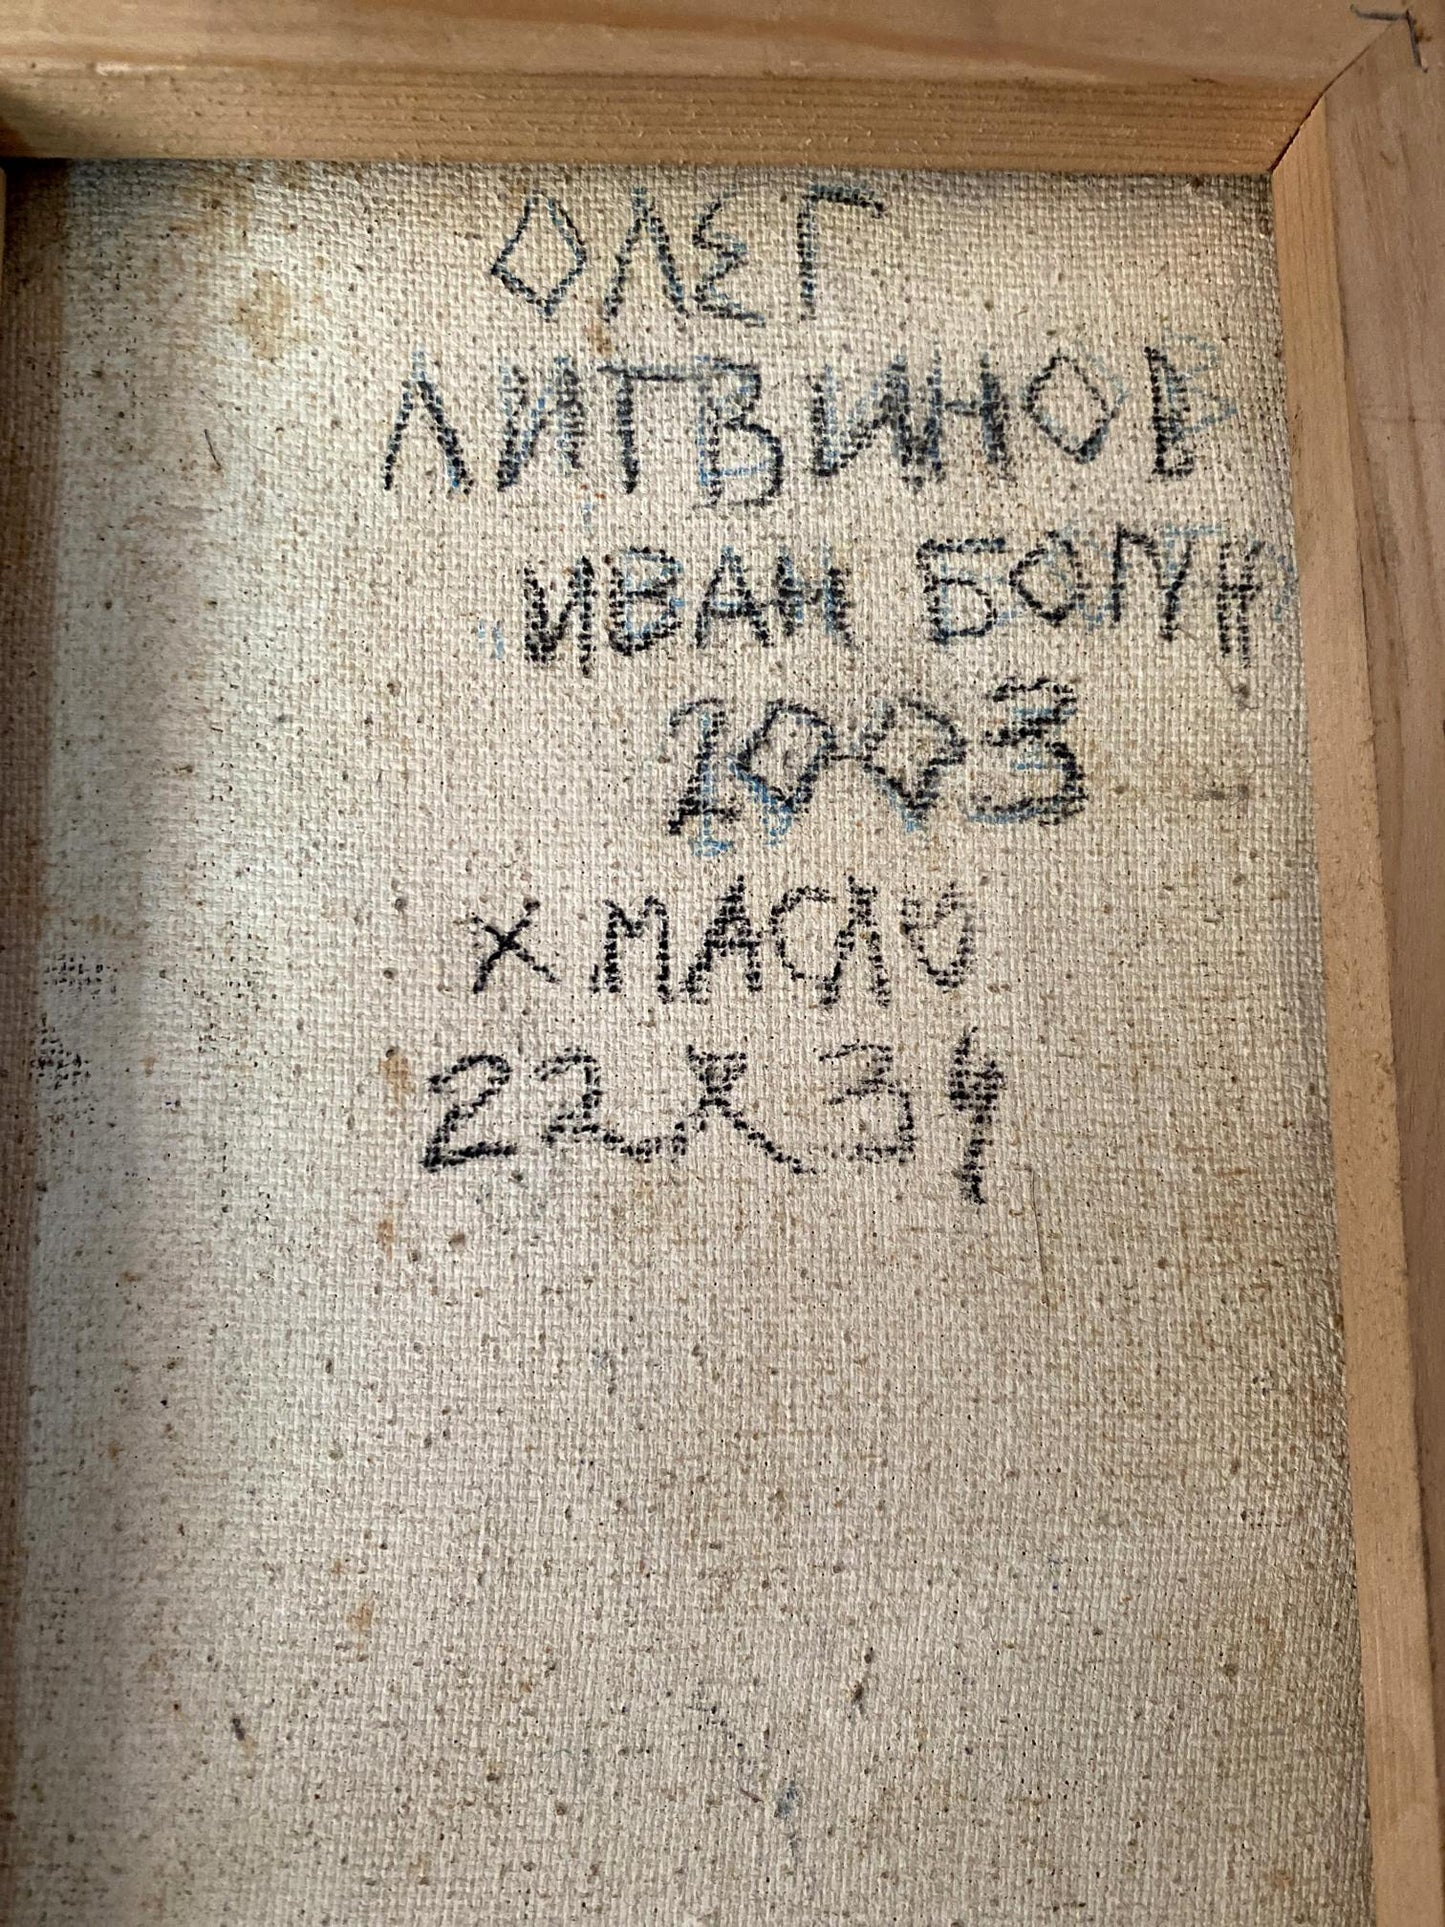 ОЛЕГ
ЛИТВИНОВ
"ИВАН
2003
Х МАСЛО
22 Х 34